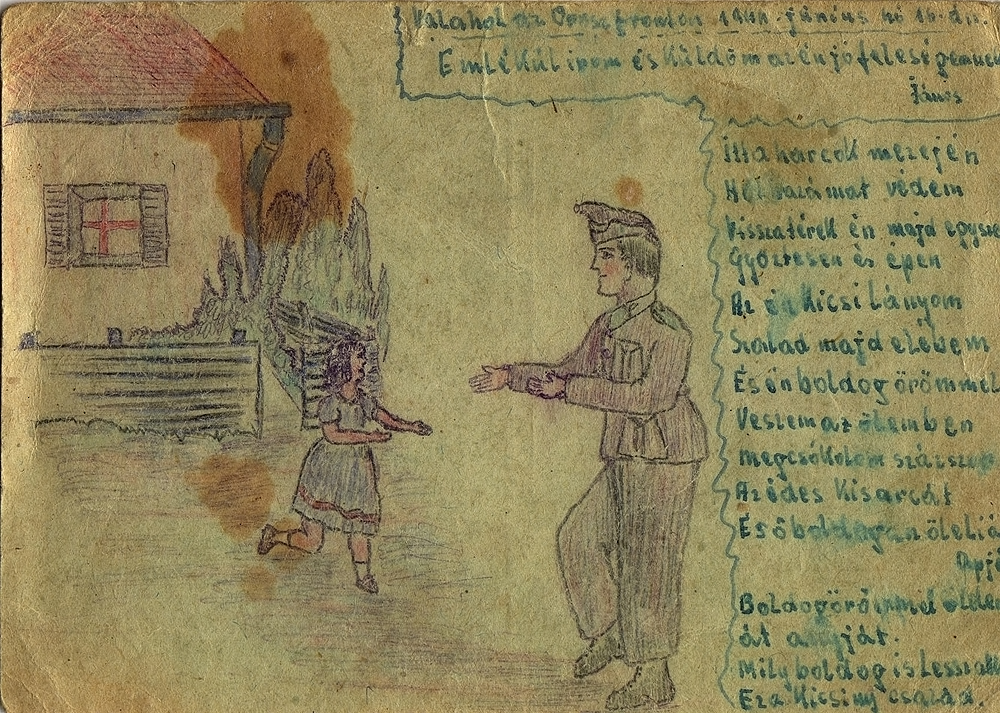 Valahol az Orosz fronton 1944. június hó 16-án.
Emlékül irom és küldöm az én jó feleségemnek
János
Itt a harcok mezején
Hű hazámat védem
Visszatérek én majd egyszer
Győztesen és épen
Az én Kicsi Lányom
Szalad majd elébem
És én boldog örömmel
Veszem az ölemben
megcsókolom százszor
Az édes Kis arcát
És ő boldogan öleli á
Apjá
Boldog örömmel ölel
át anyját.
Mily boldog is Lessz
Ez a Kicsiny család.